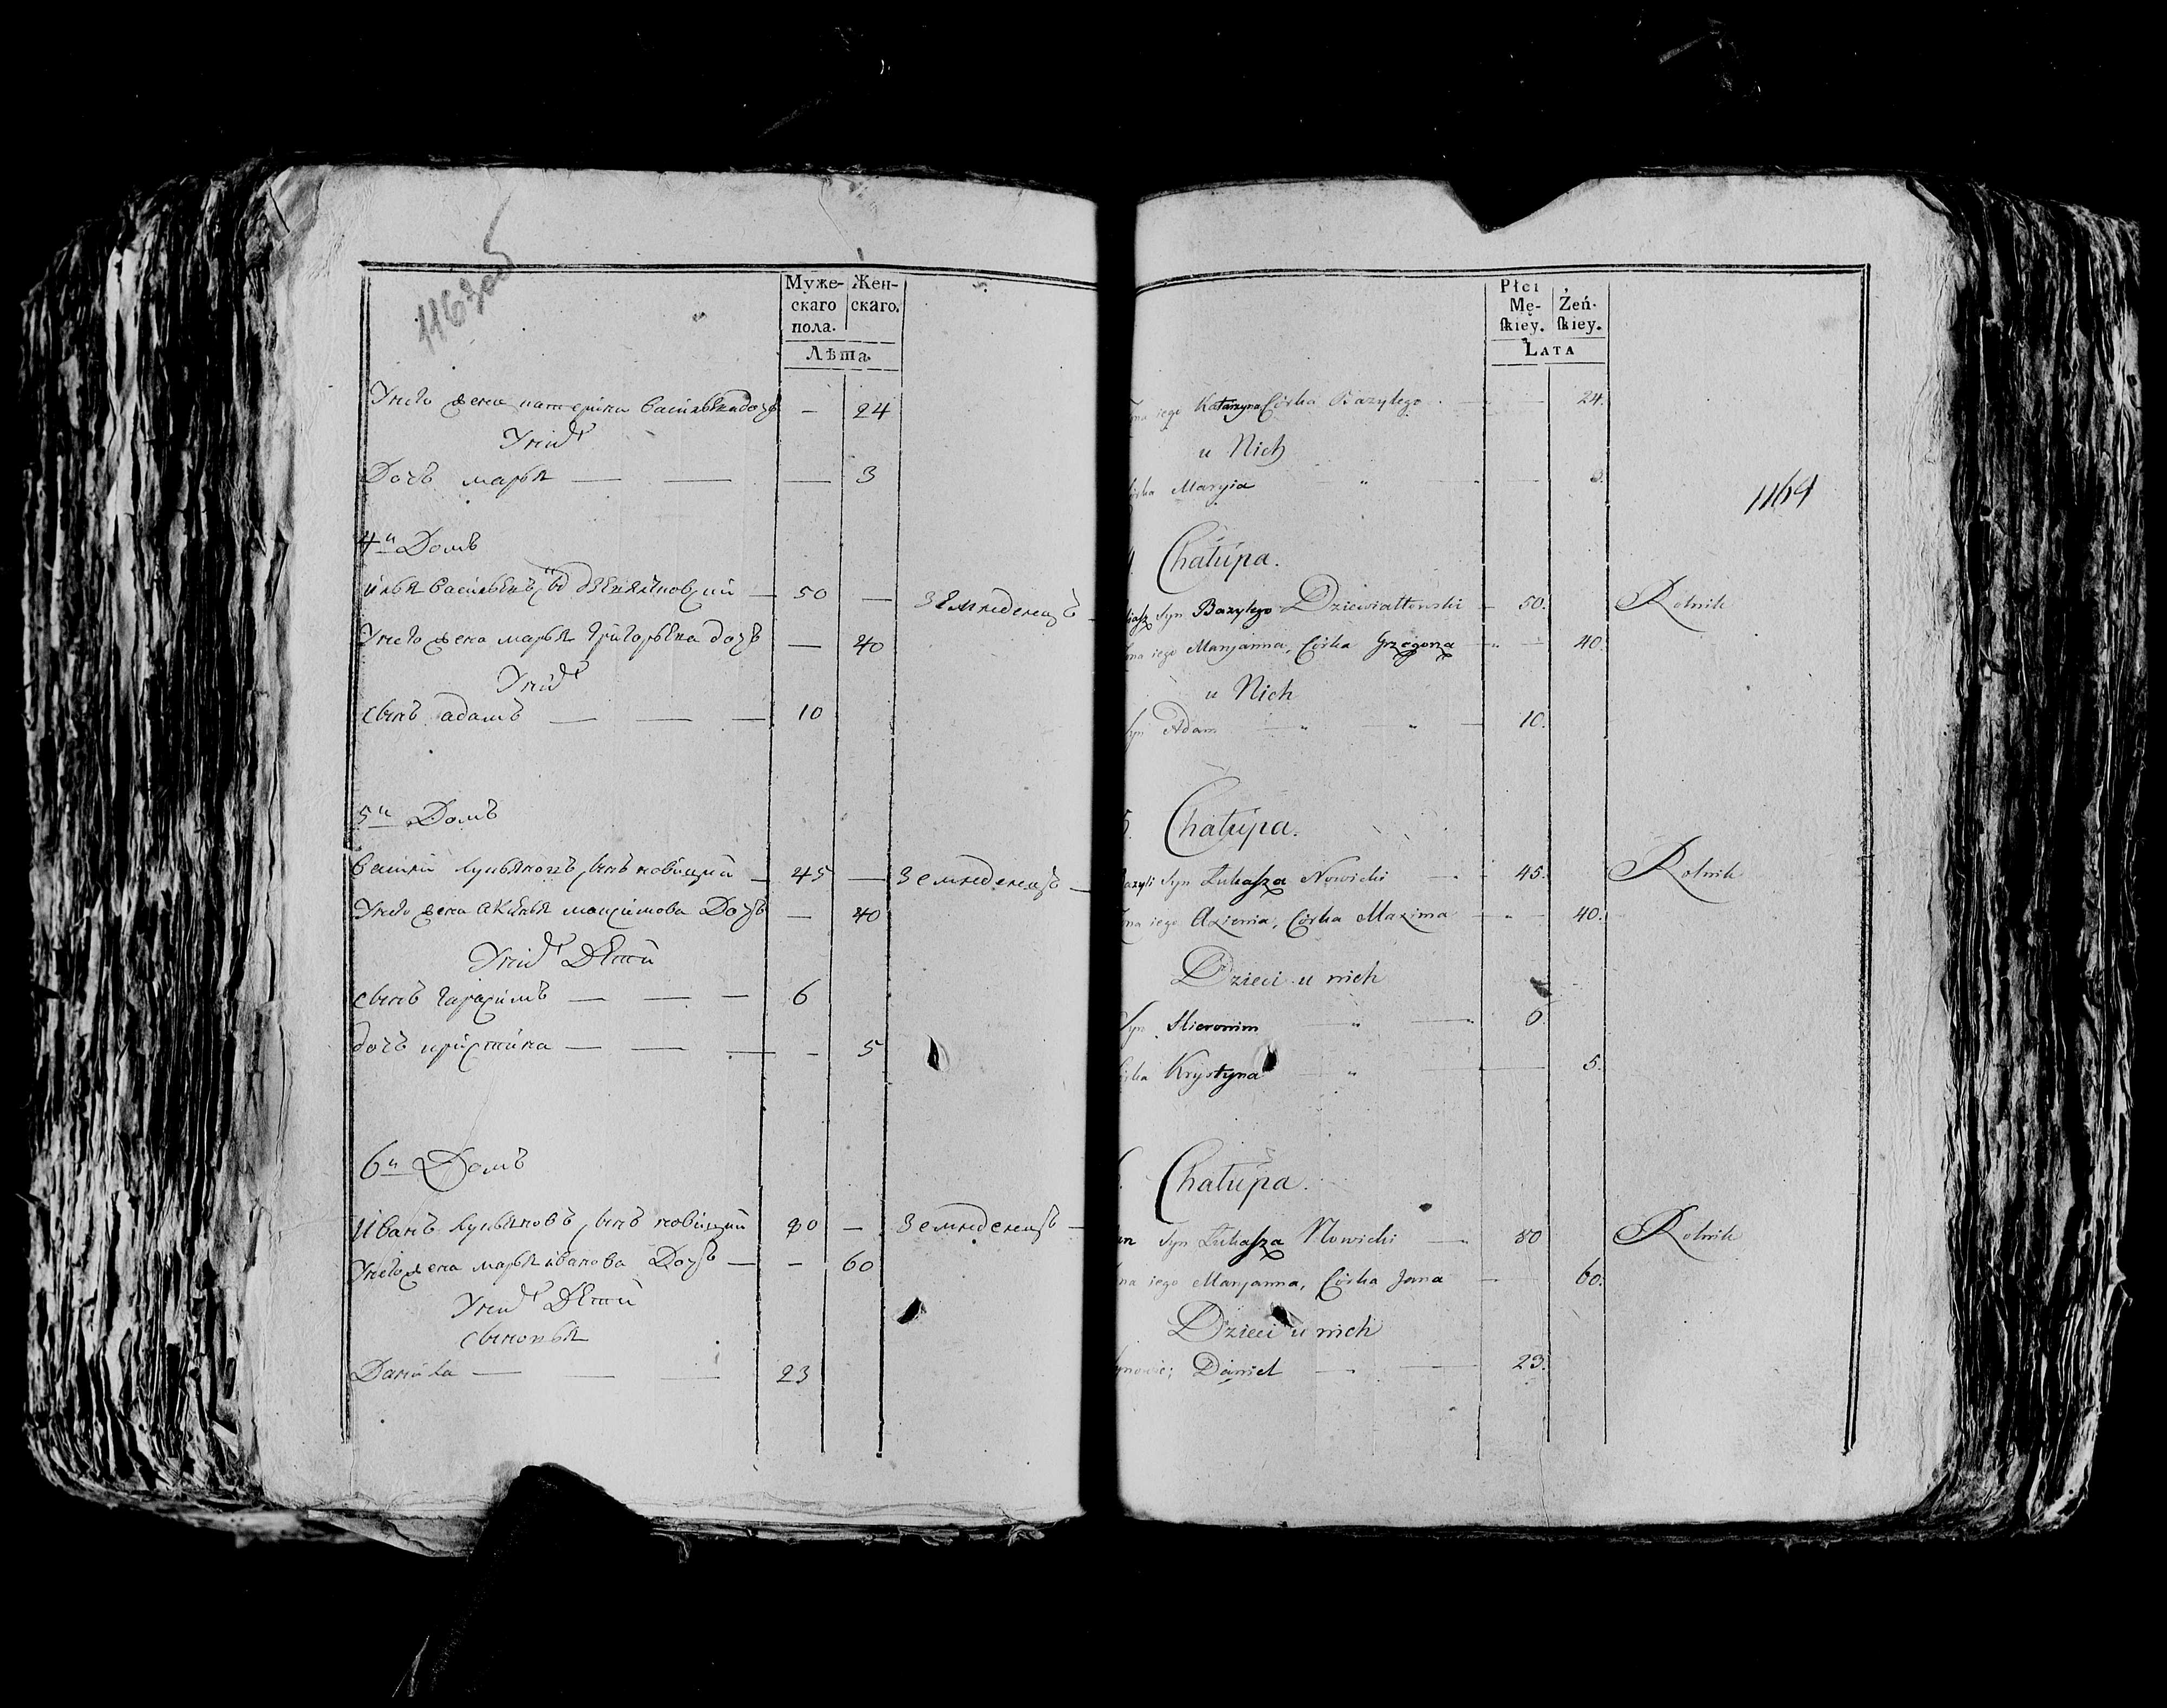 1163 об
Муже-
скаго
пола.
Жен-
скаго.
Лѣта.
У него жена катерина васильева дочь — 24
У нихъ
Дочь марья — — — 3
4й Домъ
илья васильевъ сынъ дзевялтовский — 50 — земледелецъ
У него жена марья григорьева дочь — 40
У нихъ
сынъ адамъ — — — 10
5й Домъ
василий лукьяновъ сынъ новицкий — 45 — земледелецъ
У него жена аксинья максимова Дочь — 40
У нихъ Дѣти
сынъ — — — 6
дочь кристина — — — 5
6й Домъ
Иванъ лукьяновъ сынъ новицкий 80 — земледелецъ
У него жена марья иванова Дочь — — 60
У нихъ Дѣти
сыновья
Данила — — — 23
Płci
Mę-
skiey.
Żeń-
skiey.
Lata
iego Katarzyna Córka Bazylego 24.
u Nich
Maryia 3.
1164
Chałupa.
Syn Bazylego Dziewiałtowski — 50. Rolnik
iego Maryanna, Córka Grzegorza — 40.
u Nich
Syn Adam — 10.
5. Chałupa.
Syn Łukasza Nowicki — 45. Rolnik
iego Axienia, Córka Maxima — 40.
Dzieci u nich
Syn Hieronim — 6.
Krystyna — 5.
Chałupa.
Syn Łukasza Nowicki — 80 Rolnik
iego Maryanna, Córka Jana — 60.
Dzieci u nich
Daniel — 23.